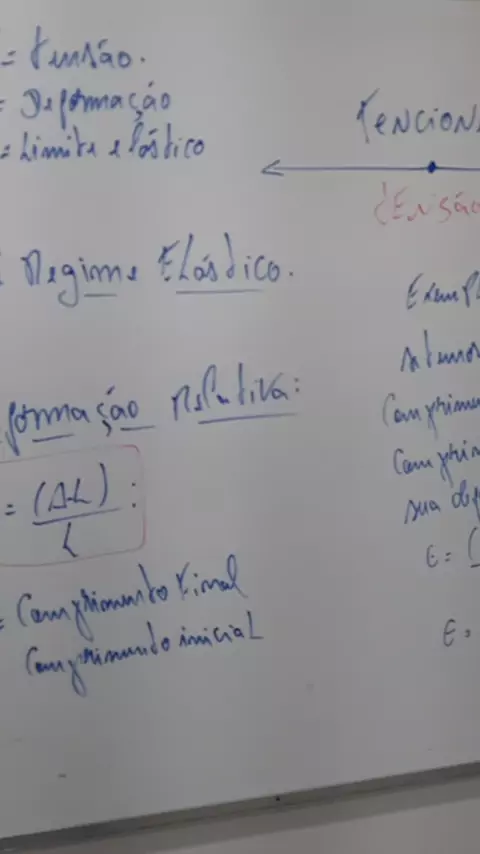 = Tensão.
= Deformação
= Limite elástico
Regime Elástico.
formação Relativa:
= (Δ-L) :
L
= Comprimento Final
Comprimundo inicial
TENCION
tENSão
Exemp
Comprimen
Comprim
sua def
E = (
E =